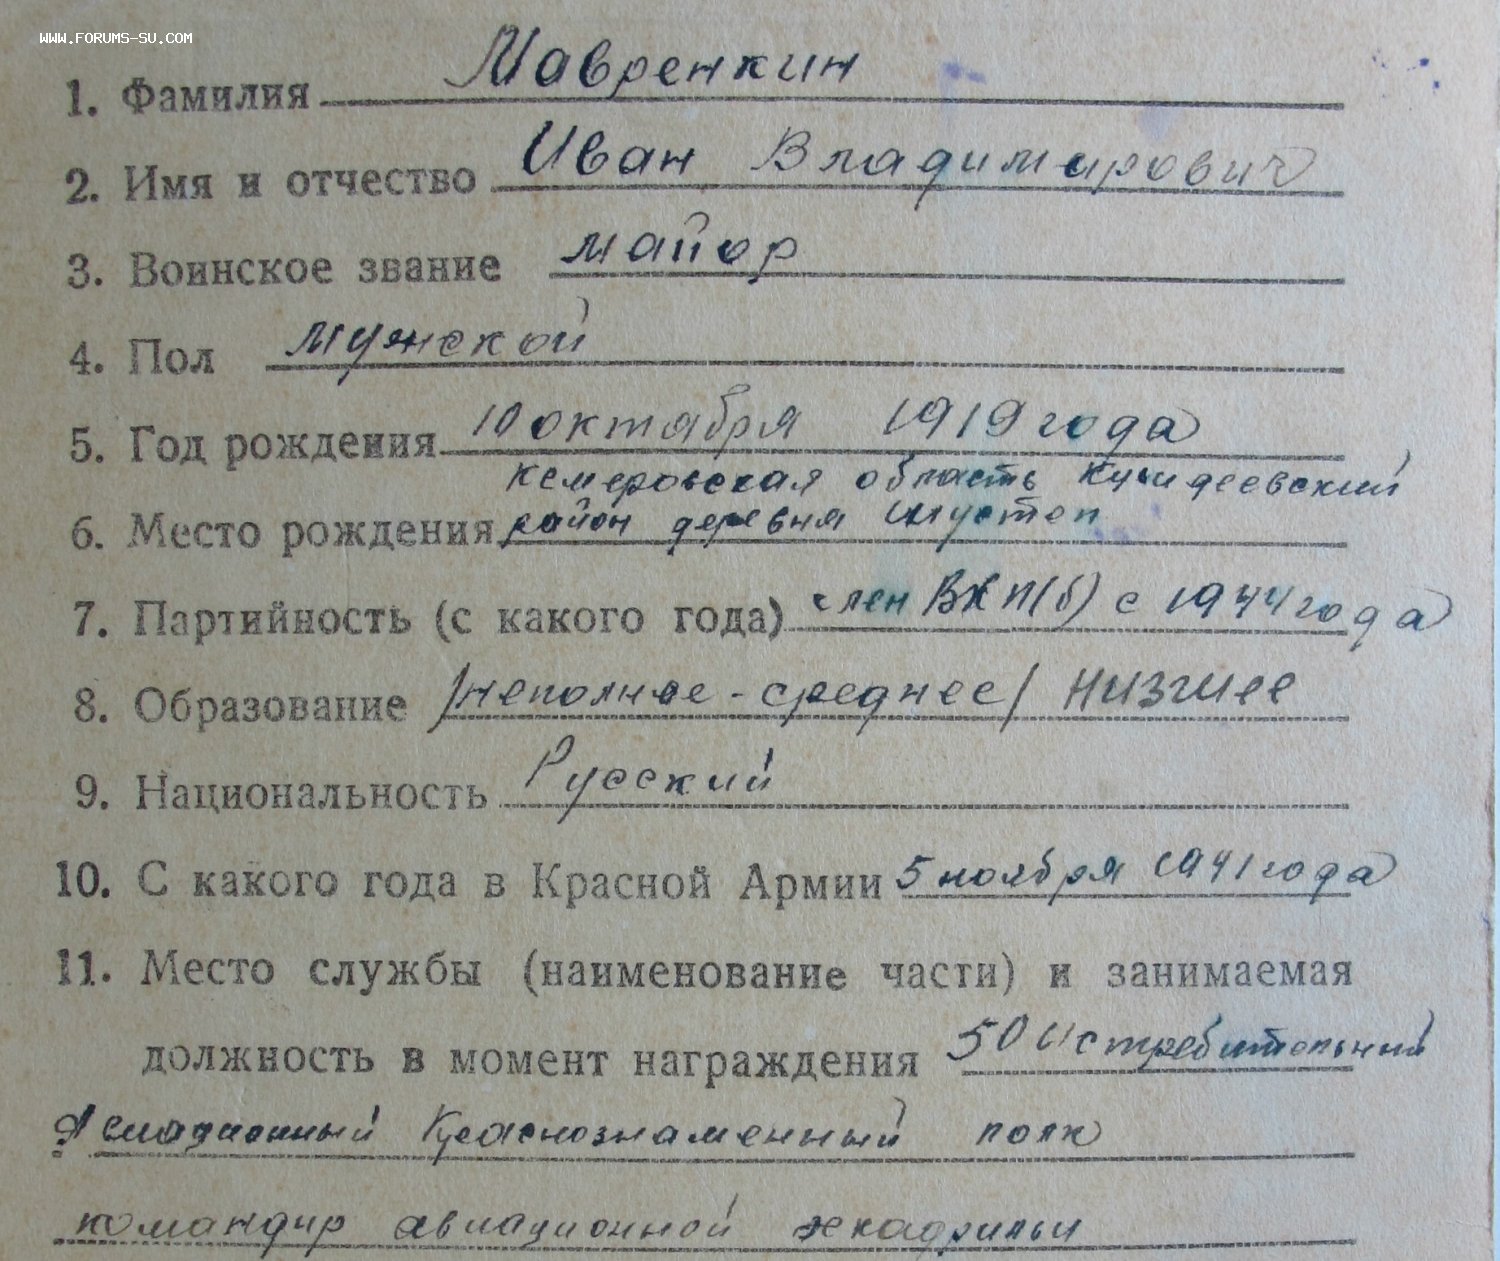 WWW.FORUMS-SU.COM
1. Фамилия Мавренкин
2. Имя и отчество Иван Владимирович
3. Воинское звание майор
4. Пол мужской
5. Год рождения 10 октября 1919 года
кемеровская область
6. Место рождения район деревня
7. Партийность (с какого года) член ВКП(б) с 1944 года
8. Образование /неполное-среднее/ низшее
9. Национальность Русский
10. С какого года в Красной Армии 5 ноября 1941 года
11. Место службы (наименование части) и занимаемая
должность в момент награждения 50 Истребительный
Авиационный Краснознаменный полк
командир авиационной эскадрильи